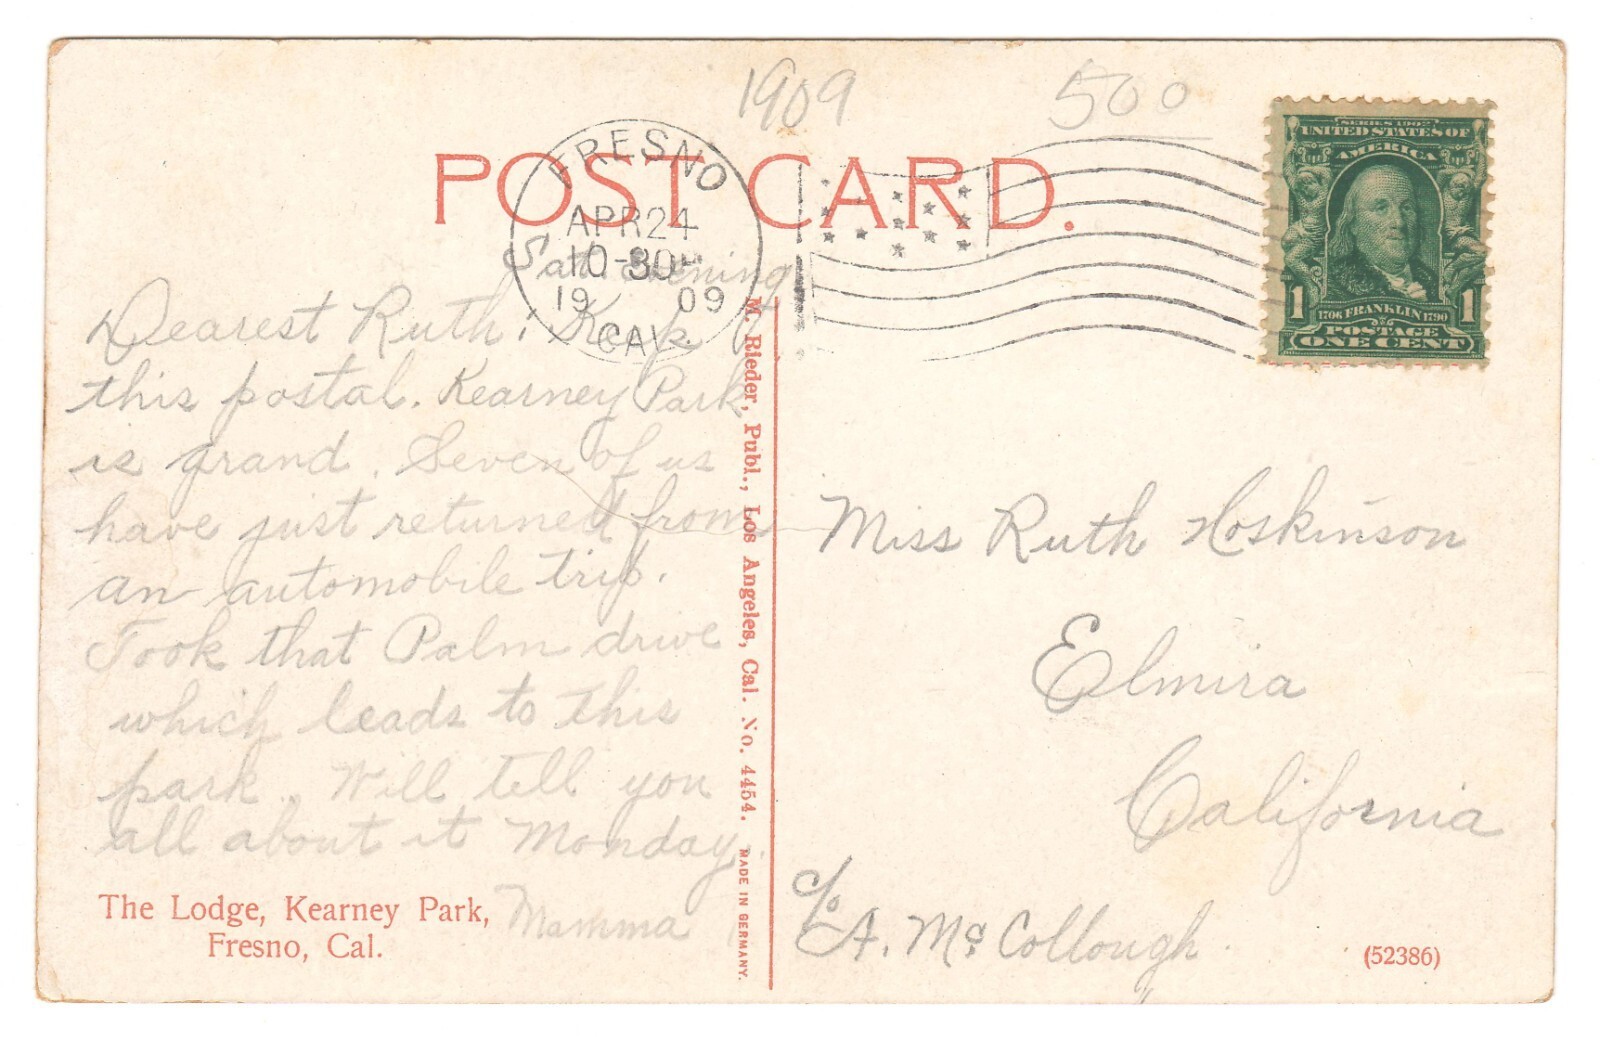 1909 500
POST CARD.
FRESNO
APR 24
10-30 P
19 09
CAL.
SERIES 1902
UNITED STATES OF
AMERICA
1 1706 FRANKLIN 1790 1
POSTAGE
ONE CENT
Sat. Evening
Dearest Ruth: Keep
this postal. Kearney Park
is grand. Seven of us
have just returned from
an automobile trip.
Took that Palm drive
which leads to this
park. Will tell you
all about it Monday.
Mamma
The Lodge, Kearney Park,
Fresno, Cal.
M. Rieder, Publ., Los Angeles, Cal. No. 4454. MADE IN GERMANY.
Miss Ruth Hoskinson
Elmira
California
c/o
A. McCollough.
(52386)